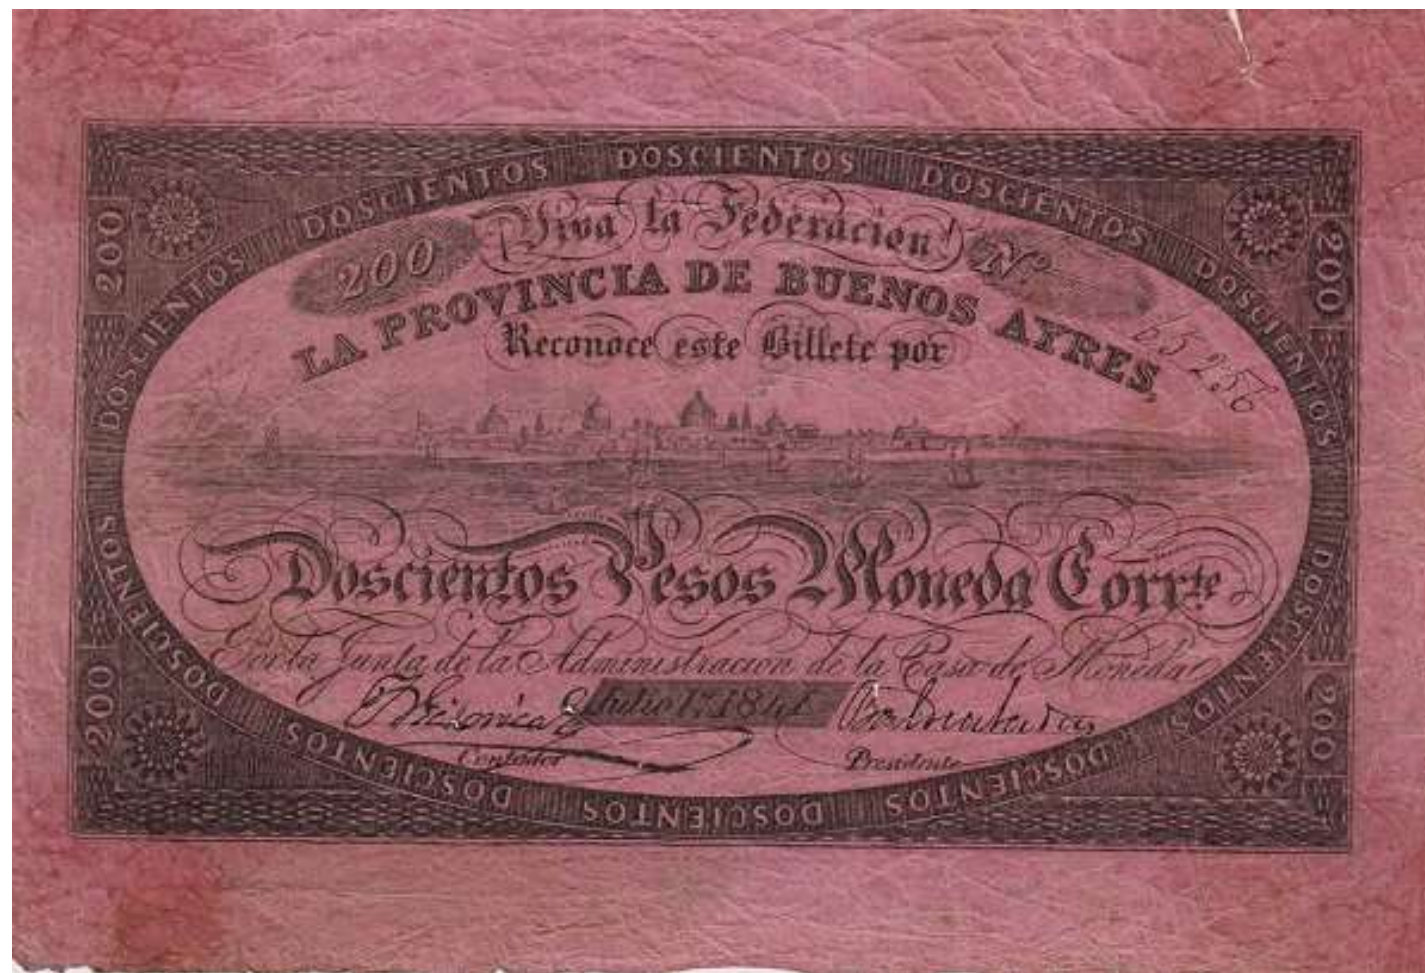 DOSCIENTOS DOSCIENTOS DOSCIENTOS DOSCIENTOS DOSCIENTOS DOSCIENTOS DOSCIENTOS DOSCIENTOS DOSCIENTOS DOSCIENTOS DOSCIENTOS DOSCIENTOS DOSCIENTOS DOSCIENTOS
200
200
200
200
¡Viva la Federacion!
200
Nº
LA PROVINCIA DE BUENOS AYRES,
Reconoce este Billete por
Doscientos Pesos Moneda Corrte
Por la Junta de la Administracion de la Casa de Moneda
Julio 1º, 1841
Contador
Presidente